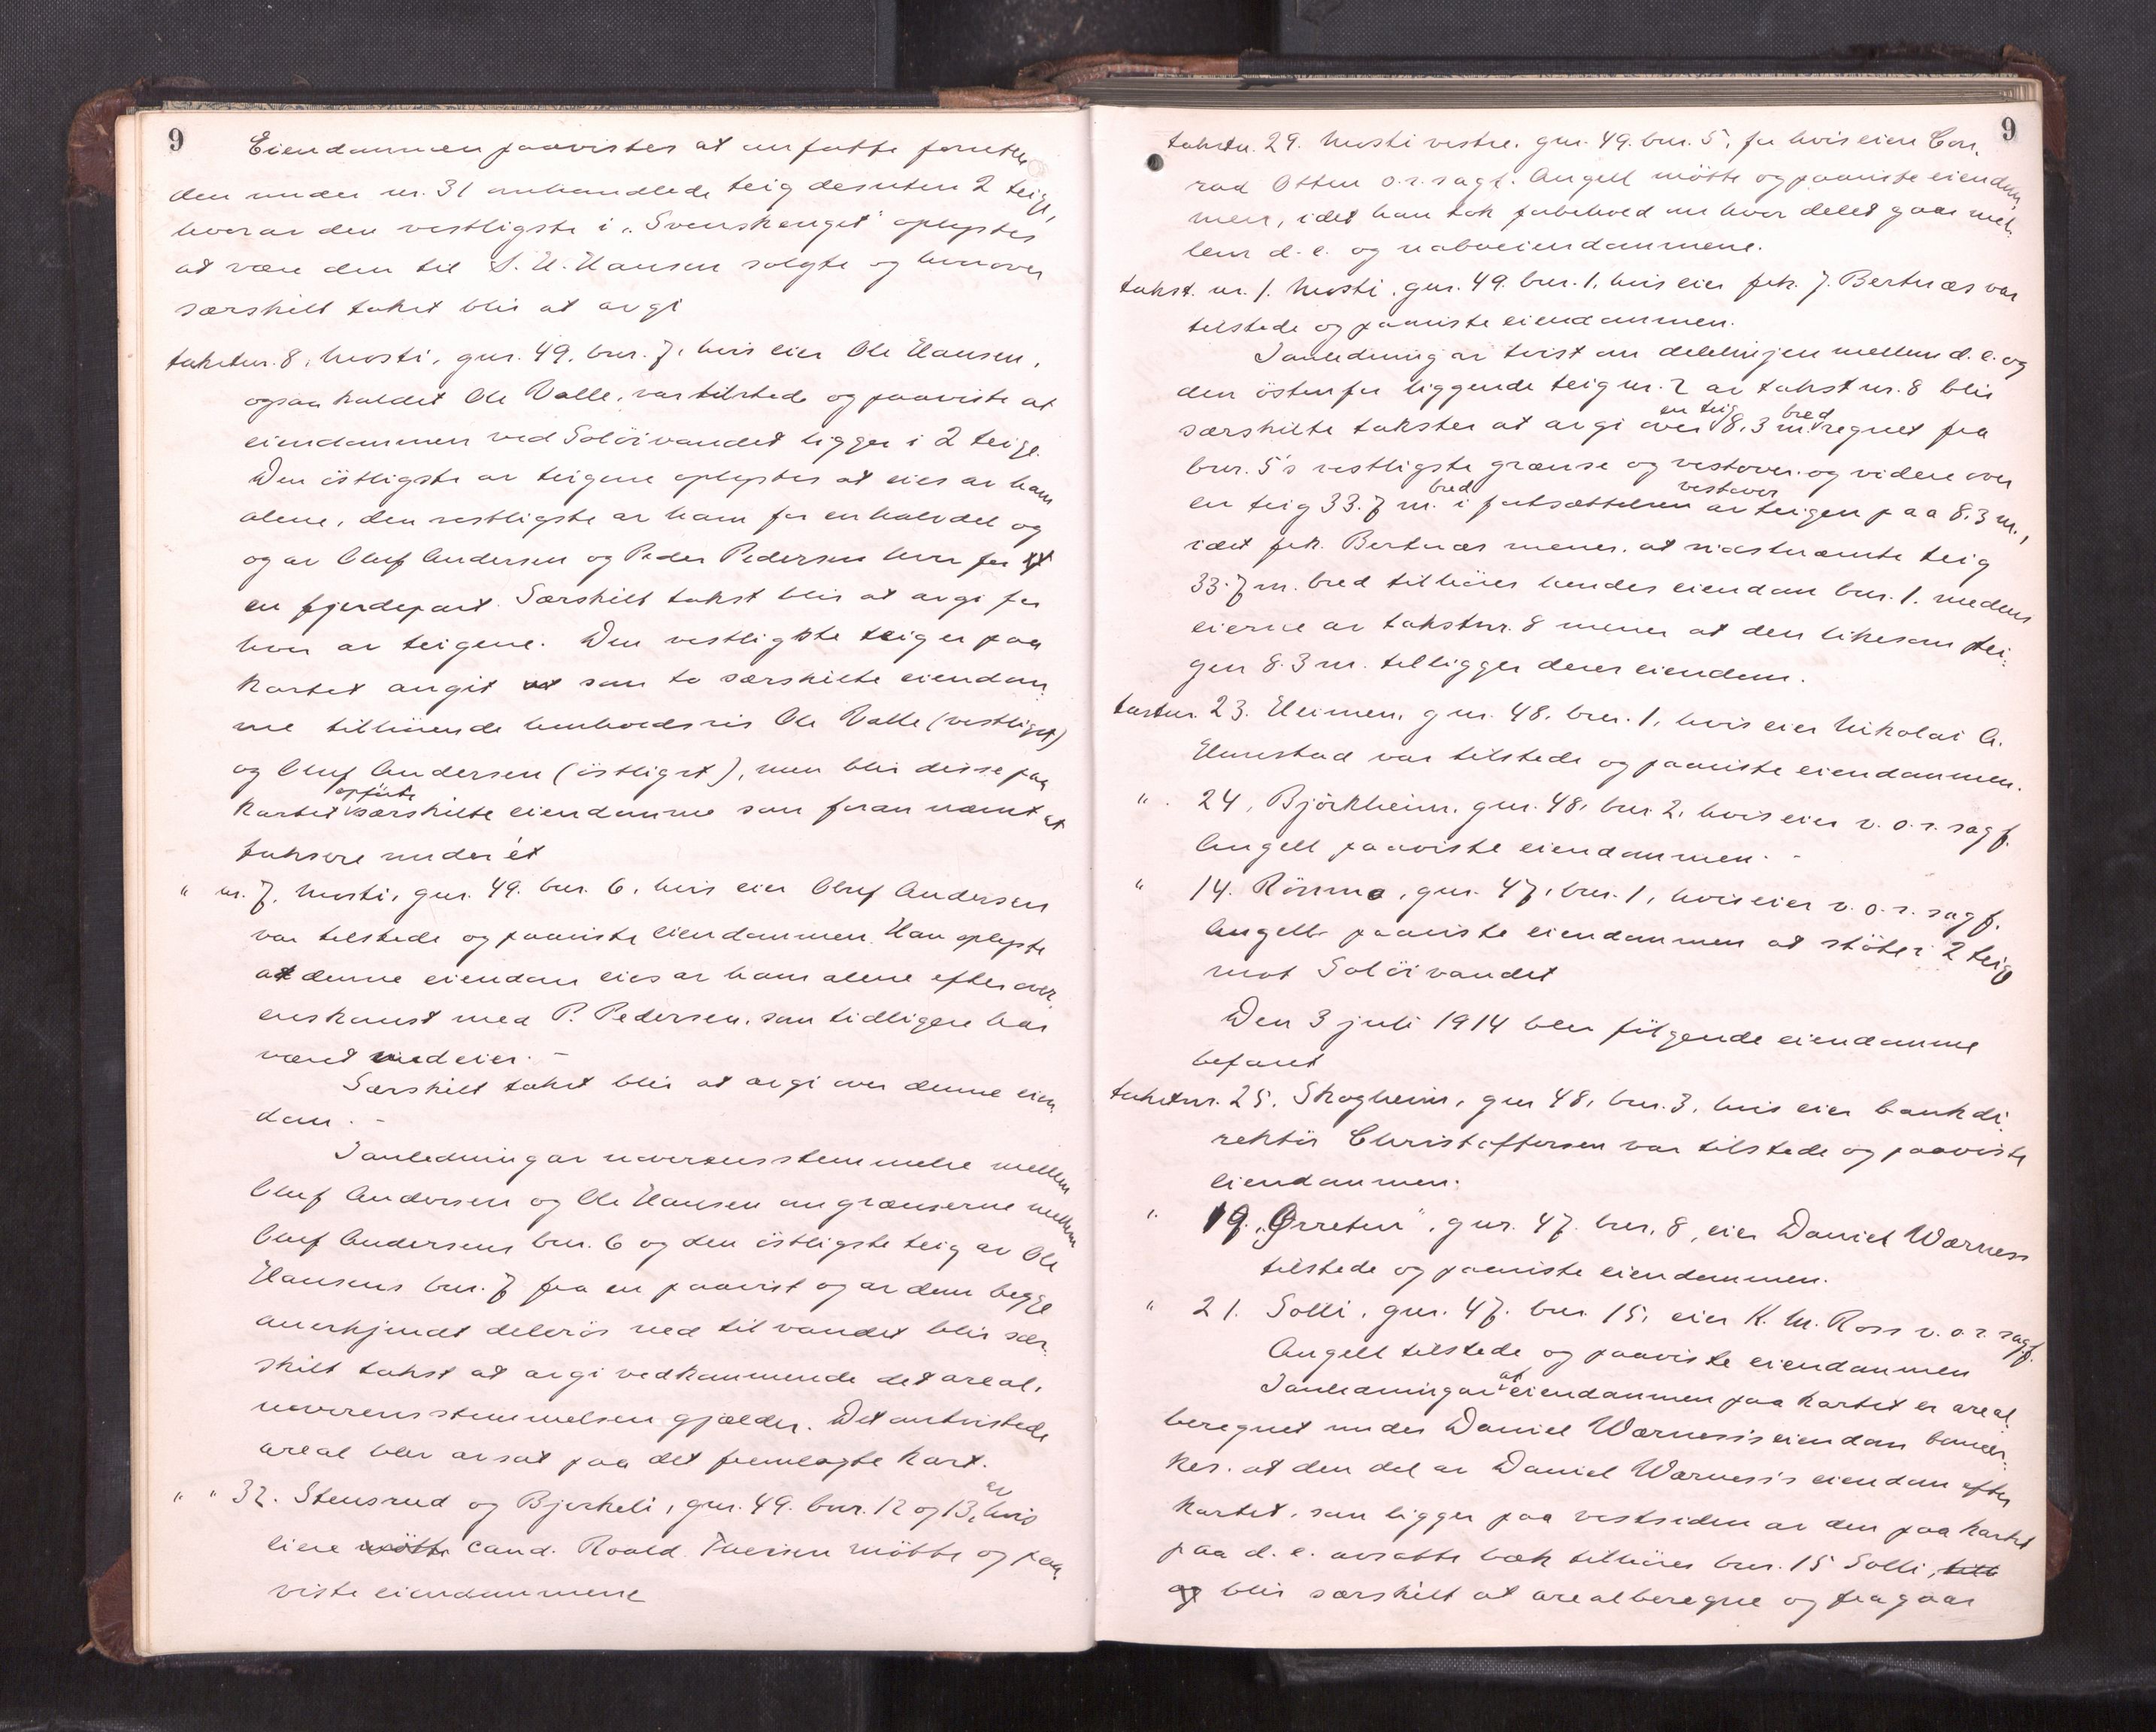 9
Eiendommen paavistes at omfatte foruten
den under nr. 31 omhandlede teig desuten 2 teige,
hvorav den vestligste i "Svenskenget" oplystes
at være den til S. H. Hansen solgte og hvorover
særskilt takst blir at avgi
takstnr. 8, Mosti, gnr. 49, bnr. 7, hvis eier Ole Hansen,
ogsaa kaldet Ole Valle, var tilstede og paaviste at
eiendommen ved Solöivandet ligger i 2 teige.
Den östligste av teigene oplystes at eies av ham
alene, den vestligste av ham for en halvdel og
og av Oluf Andersen og Peder Pedersen hver for
en fjerdepart. Særskilt takst blir at avgi for
hver av teigene. Den vestligste teig er paa
kartet angit som to særskilte eiendom-
me tilhörende henholdsvis Ole Valle (vestligst)
og Oluf Andersen (östligst), men blir disse paa
kartet opförte særskilte eiendomme som foran nævnt at
taksere under ét
" nr. 7, Mosti, gnr. 49. bnr. 6, hvis eier Oluf Andersen
var tilstede og paaviste eiendommen. Han oplyste
at denne eiendom eies av ham alene efter over-
enskomst med P. Pedersen, som tidligere har
været medeier. -
Særskilt takst blir at avgi over denne eien
dom. -
I anledning av uoverensstemmelse mellem
Oluf Andersen og Ole Hansen om grænserne mellem
Oluf Andersens bnr. 6 og den östligste teig av Ole
Hansens bnr. 7 fra en paavist og av dem begge
anerkjendt delerös ned til vandet blir sær-
skilt takst at avgi vedkommende det areal,
uoverensstemmelsen gjælder. Det omtvistede
areal blev avsat paa det fremlagte kart.
" " 32. Stensrud og Bjerkeli, gnr. 49. bnr. 12 og 13, av hvis
eiere mötte cand. Roald Iversen mötte og paa-
viste eiendommene
9
takstn. 29. Mosti vestre. gnr. 49. bnr. 5, for hvis eier Con-
rad Otten o.r.sagf. Angell mötte og paaviste eiendom-
men, idet han tok forbehold om hvor delet gaar mel-
lem d. e. og naboeiendommene.
takst. nr. 1. Mosti, gnr. 49. bnr. 1, hvis eier frk. J. Bertnæs var
tilstede og paaviste eiendommen.
I anledning av tvist om delelinjen mellem d. e. og
den östenfor liggende teig nr. 2 av takst nr. 8 blir
særskilte takster at avgi over en teig 8,3 m. bred regnet fra
bnr. 5's vestligste grænse og vestover og videre over
en teig 33.7 m. bred i fortsættelsen vestover av teigen paa 8.3 m.,
idet frk. Bertnæs mener, at sidstnævnte teig
33.7 m. bred tilhörer hendes eiendom bnr. 1, medens
eierne av takstnr. 8 mener at den likesom tei-
gen 8.3 m. tilligger deres eiendom.
takstnr. 23. Heimen, gnr. 48, bnr. 1, hvis eier Nikolai A.
Elvrestad var tilstede og paaviste eiendommen.
". 24, Björkheim, gnr. 48, bnr 2, hvis eier v. o.r.sagf.
Angell paaviste eiendommen. -
" 14. Rönmo, gnr. 47, bnr. 1, hvis eier v. o.r.sagf.
Angell paaviste eiendommen at støte i 2 teige
mot Solöivandet
Den 3 juli 1914 blev fölgende eiendomme
befaret
takstnr. 25. Skogheim, gnr 48, bnr. 3, hvis eier bankdi-
rektör Christoffersen var tilstede og paaviste
eiendommen.
" 19. "Ørreten", gnr. 47. bnr. 8, eier Daniel Wærness
tilstede og paaviste eiendommen.
" 21. Solli, gnr. 47. bnr. 15, eier K. M. Ross v. o.r.sagf.
Angell tilstede og paaviste eiendommen
I anledning av at eiendommen paa kartet er areal-
beregnet under Daniel Wærness's eiendom bemer-
kes, at den del av Daniel Wærness's eiendom efter
kartet, som ligger paa vestsiden av den paa kartet
paa d. e. avsatte bæk tilhörer bnr. 15 Solli, till
og blir særskilt at arealberegne og fragaar